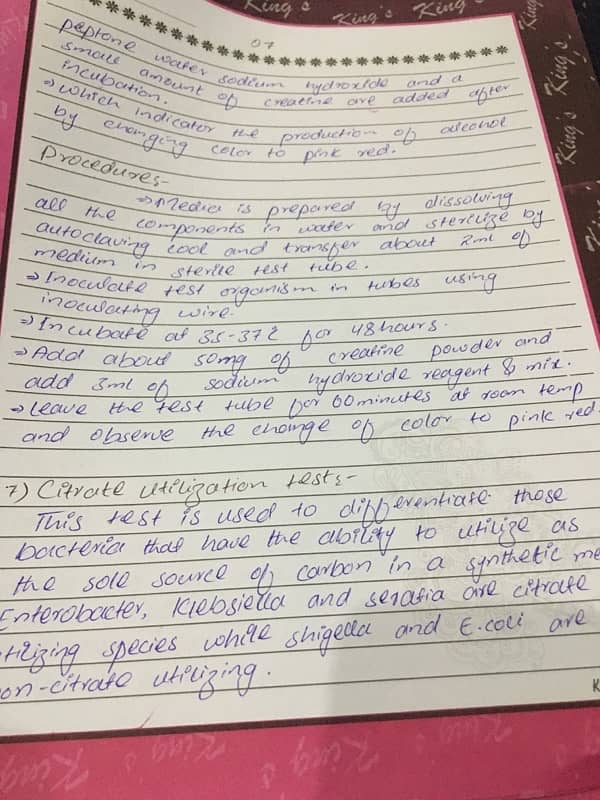 King's King's King's King's
07
peptone water sodium hydroxide and a
small amount of creatine are added after
incubation.
→ which indicator the production of alcohol
by changing color to pink red.
Procedures-
→ Media is prepared by dissolving
all the components in water and sterilize by
autoclaving cool and transfer about 2ml of
medium in sterile test tube.
→ Inoculate test organism in tubes using
inoculating wire.
→ Incubate at 35-37℃ for 48 hours.
→ Add about 50mg of creatine powder and
add 3ml of sodium hydroxide reagent & mix.
→ Leave the test tube for 60 minutes at room temp
and observe the change of color to pink red.
7) Citrate utilization tests-
This test is used to differentiate those
bacteria that have the ability to utilize as
the sole source of carbon in a synthetic me
Enterobacter, Klebsiella and seratia are citrate
tilizing species while shigella and E.coli are
on-citrate utilizing.
K
King's King's King's King's